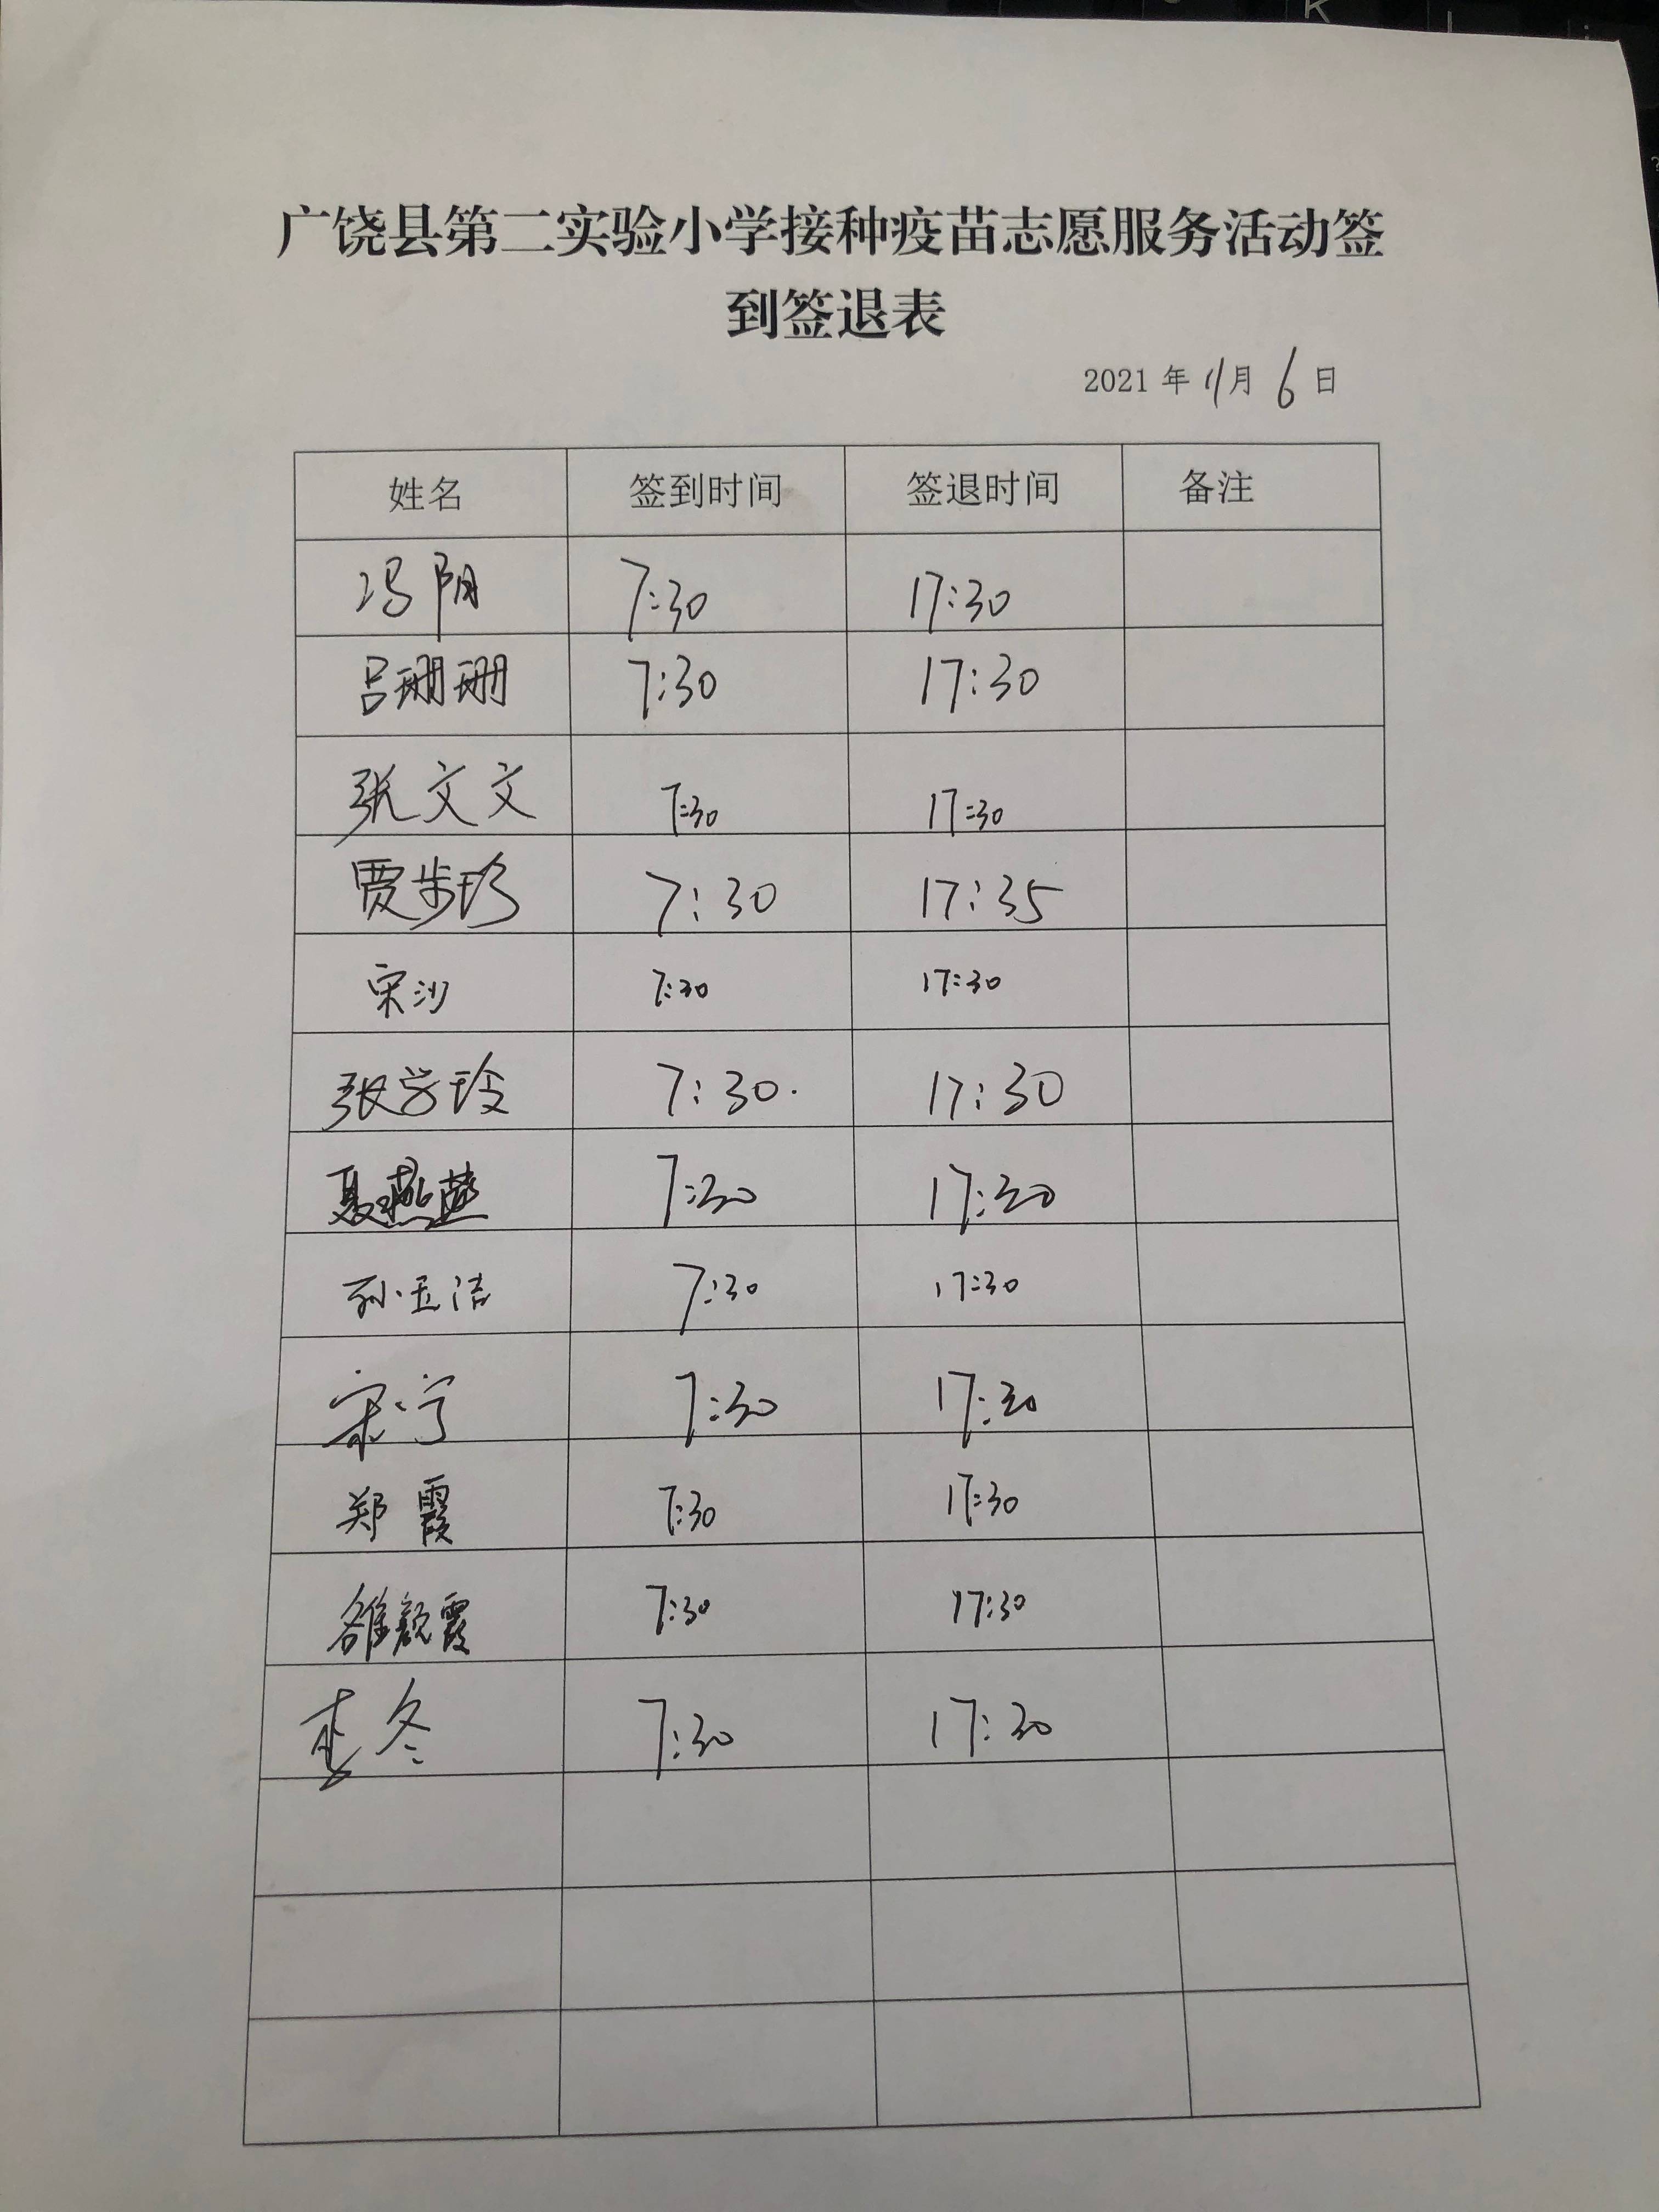 广饶县第二实验小学接种疫苗志愿服务活动签
到签退表
2021年11月6日
姓名 签到时间 签退时间 备注
冯阳 7:30 17:30
吕珊珊 7:30 17:30
张文文 7:30 17:30
贾步珍 7:30 17:35
宋沙 7:30 17:30
张学玲 7:30 17:30
聂燕燕 7:30 17:30
孙玉洁 7:30 17:30
宋宁 7:30 17:30
郑霞 7:30 17:30
霞 7:30 17:30
李冬 7:30 17:30